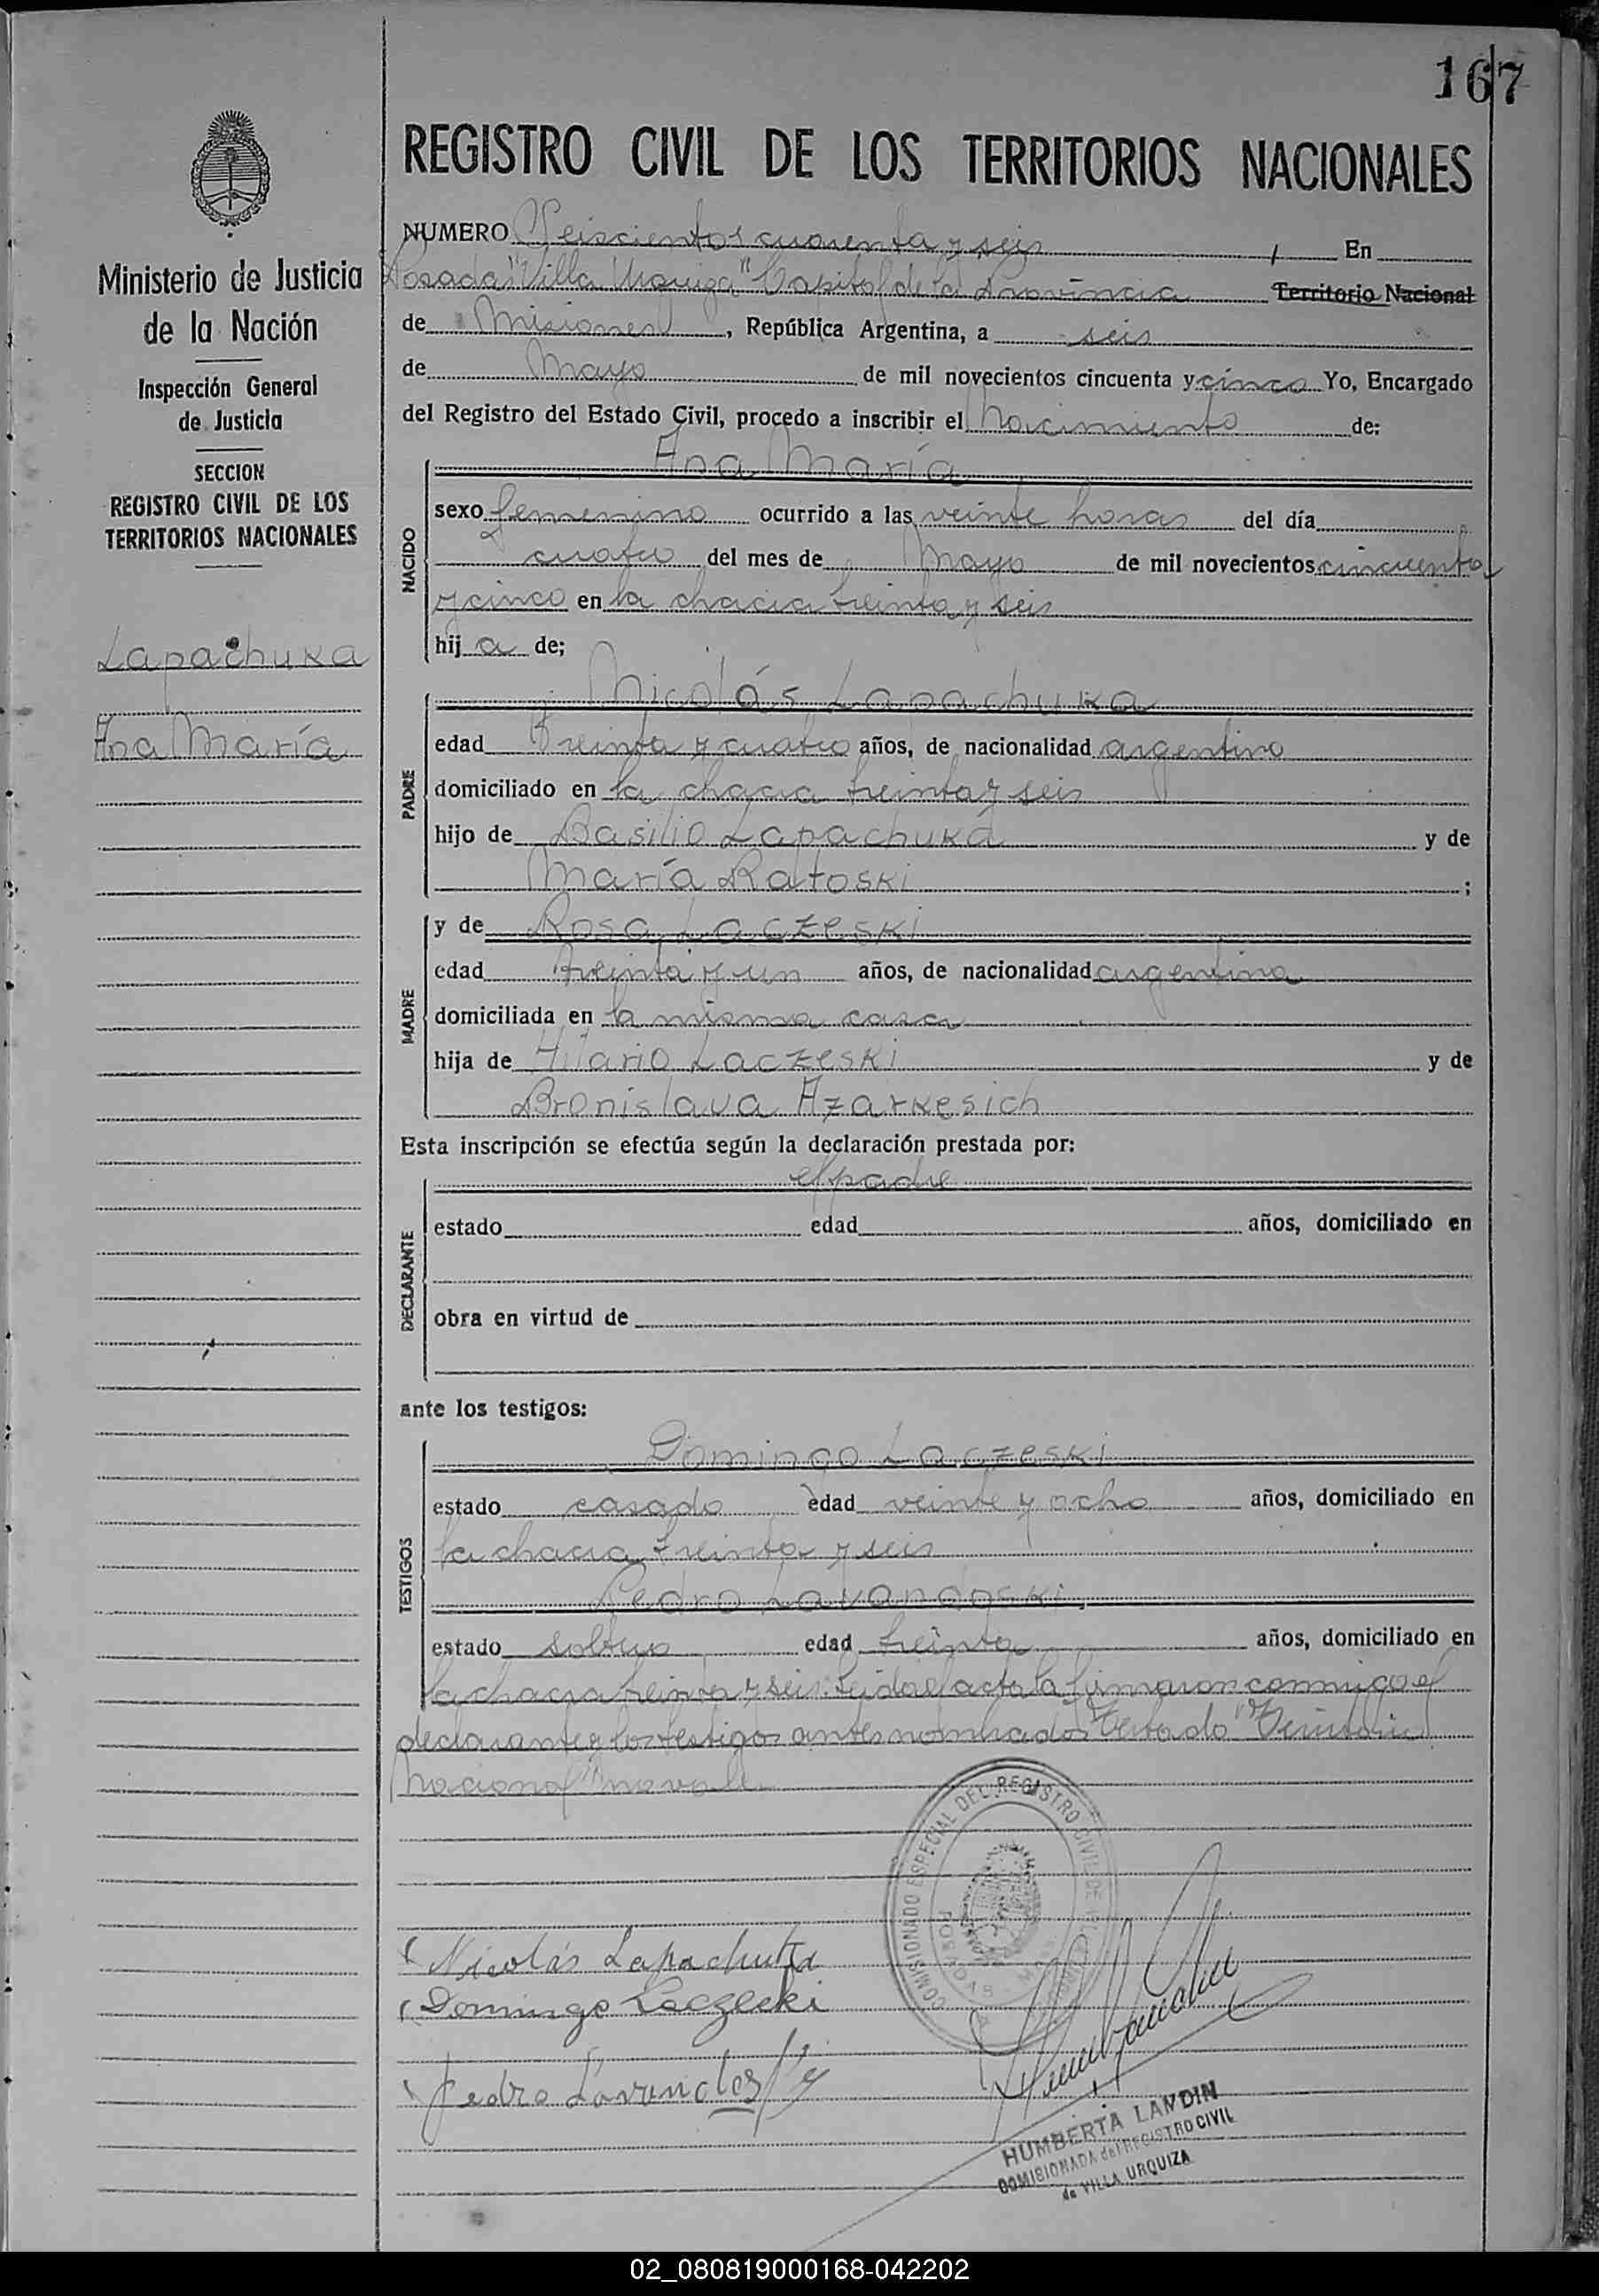 167
REGISTRO CIVIL DE LOS TERRITORIOS NACIONALES
Ministerio de Justicia
de la Nación
Inspección General
de Justicia
SECCION
REGISTRO CIVIL DE LOS
TERRITORIOS NACIONALES
Lapachuka
Ana María
NUMERO Seiscientos cuarenta y seis En
Posadas "Villa Urquiza" Capital de la Provincia Territorio Nacional
de Misiones, República Argentina, a seis
de Mayo de mil novecientos cincuenta y cinco Yo, Encargado
del Registro del Estado Civil, procedo a inscribir el Nacimiento de:
Ana María
NACIDO
sexo femenino ocurrido a las veinte horas del día
cuatro del mes de Mayo de mil novecientos cincuenta
y cinco en la chacra treinta y seis
hija de;
PADRE
Nicolás Lapachuka
edad treinta y cuatro años, de nacionalidad argentino
domiciliado en la chacra treinta y seis
hijo de Basilio Lapachuka y de
María Ratoski ;
MADRE
y de Rosa Laczeski
edad treinta y un años, de nacionalidad argentina
domiciliada en la misma casa
hija de Hilario Laczeski y de
Bronislava Azarkesich
Esta inscripción se efectúa según la declaración prestada por:
el padre
DECLARANTE
estado edad años, domiciliado en
obra en virtud de
ante los testigos:
TESTIGOS
Domingo Laczeski
estado casado edad veinte y ocho años, domiciliado en
la chacra treinta y seis
Pedro Lavandoski
estado soltero edad treinta años, domiciliado en
la chacra treinta y seis. Leída el acta la firmaron conmigo el
declarante y los testigos antes nombrados Testado "Territorio
Nacional" no vale
COMISIONADO ESPECIAL DEL REGISTRO CIVIL DE
POSADAS
Nicolás Lapachuka
Domingo Laczeski
Pedro
HUMBERTA LANDIN
COMISIONADA del REGISTRO CIVIL
de VILLA URQUIZA
02_080819000168-042202